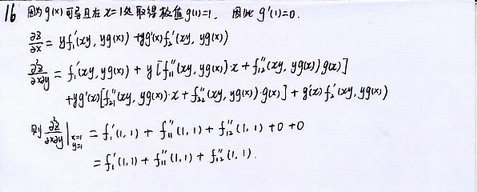 16 因为g(x)可导且在x=1处取得极值g(1)=1, 因此g'(1)=0.
∂z/∂x = yf₁'(xy, yg(x)) + yg'(x)f₂'(xy, yg(x))
∂²z/∂x∂y = f₁'(xy, yg(x)) + y[f₁₁''(xy, yg(x))·x + f₁₂''(xy, yg(x))g(x)]
+yg'(x)[f₂₁''(xy, yg(x))·x + f₂₂''(xy, yg(x))·g(x)] + g'(x)f₂'(xy, yg(x))
则 ∂²z/∂x∂y |ₓ₌₁ y=1 = f₁'(1,1) + f₁₁''(1,1) + f₁₂''(1,1) + 0 + 0
= f₁'(1,1) + f₁₁''(1,1) + f₁₂''(1,1).